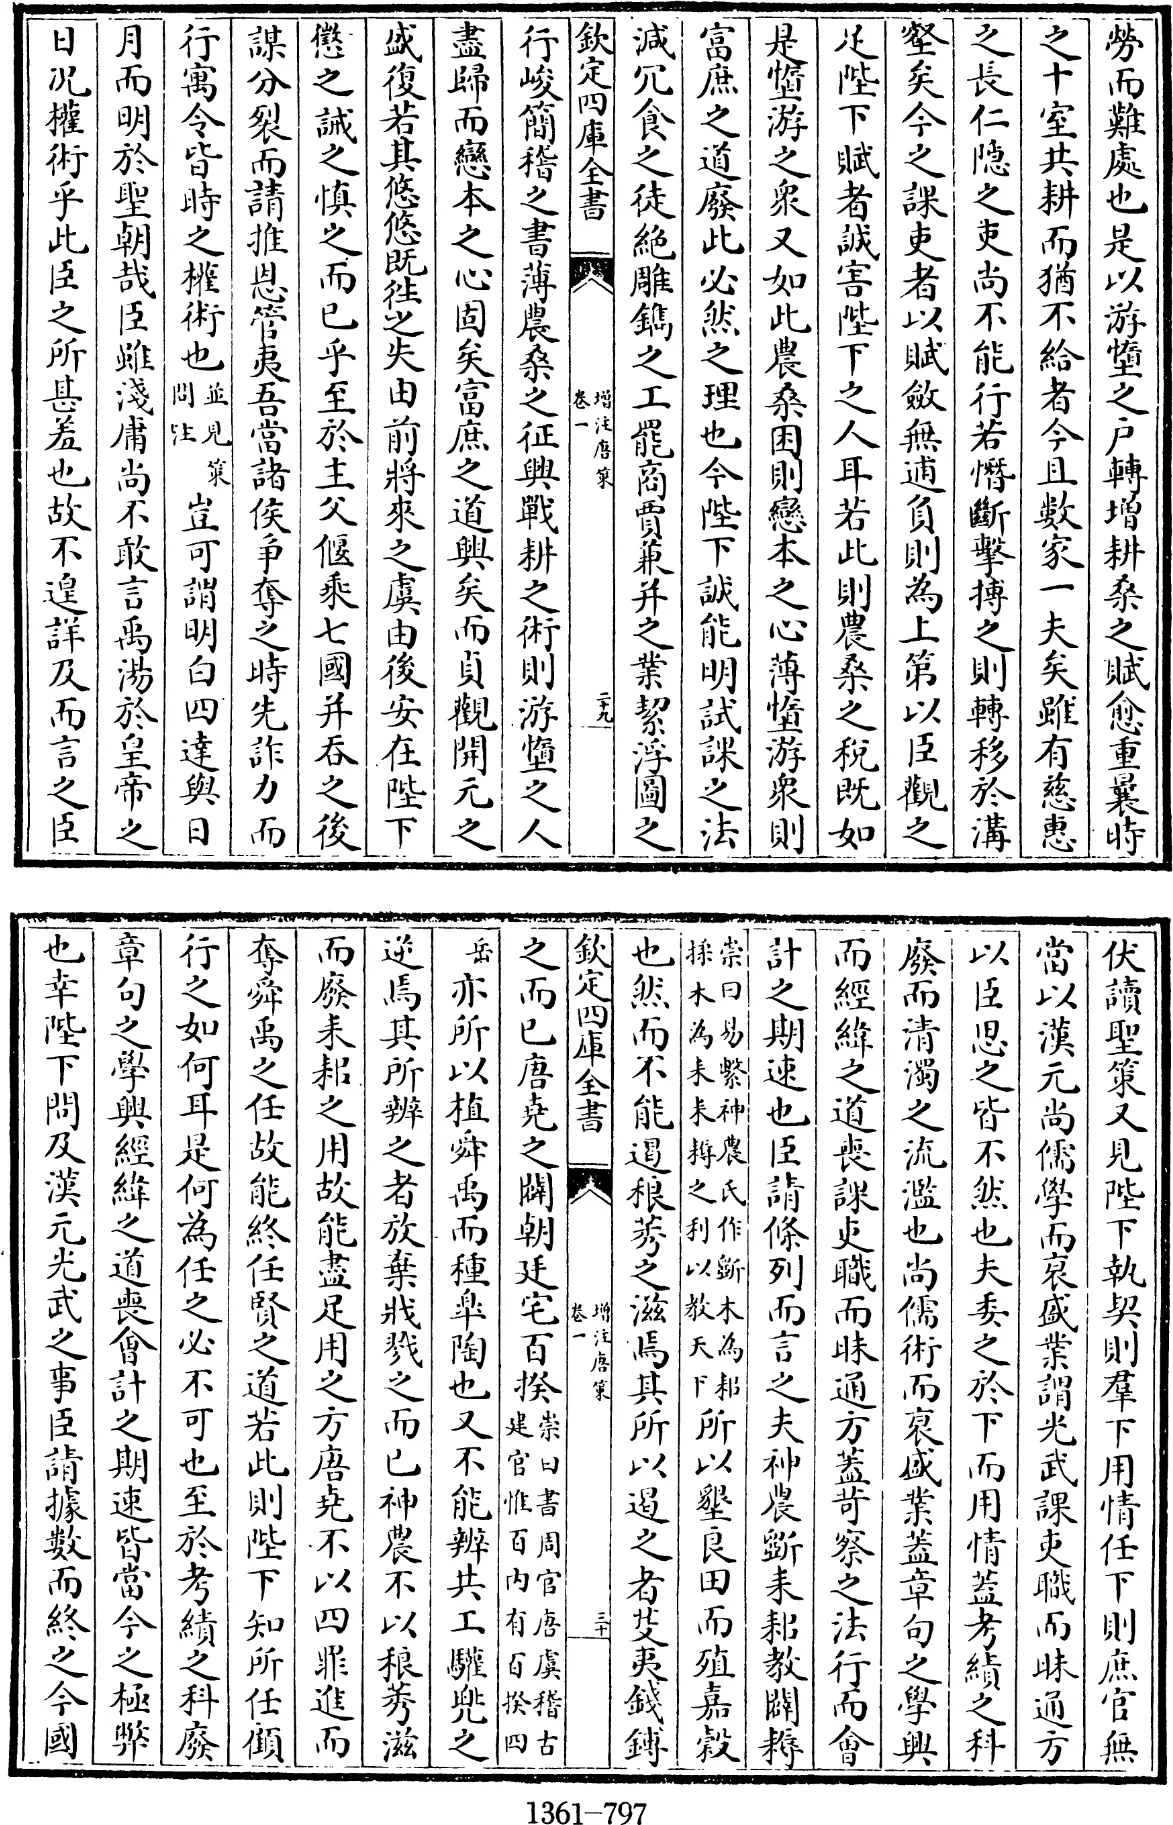 勞而難處也是以游墮之戸轉增耕桑之賦愈重曩時
之十室共耕而猶不給者今且數家一夫矣雖有慈惠
之長仁隠之吏尚不能行若憯斷擊搏之則轉移於溝
壑矣今之課吏者以賦斂無逋負則為上第以臣觀之
足陛下賦者誠害陛下之人耳若此則農桑之稅既如
是墮游之衆又如此農桑困則戀本之心薄墮游衆則
富庶之道廢此必然之理也今陛下誠能明試課之法
減冗食之徒絶雕鐫之工罷商賈兼并之業絜浮圖之
欽定四庫全書
增注唐策
卷一
二十九
行峻簡稽之書薄農桑之征興戰耕之術則游墮之人
盡歸而戀本之心固矣富庶之道興矣而貞觀開元之
盛復若其悠悠既往之失由前將來之虞由後安在陛下
懲之誡之慎之而已乎至於主父偃乘七國并吞之後
謀分裂而請推恩管夷吾當諸侯爭奪之時先詐力而
行寓令皆時之權術也並見策問注豈可謂明白四達與日
月而明於聖朝哉臣雖淺庸尚不敢言禹湯於皇帝之
日况權術乎此臣之所甚羞也故不遑詳及而言之臣
伏讀聖策又見陛下執契則羣下用情任下則庶官無
當以漢元尚儒學而衰盛業謂光武課吏職而昧通方
以臣思之皆不然也夫委之於下而用情蓋考績之科
廢而清濁之流濫也尚儒術而衰盛業蓋章句之學興
而經緯之道喪課吏職而昧通方蓋苛察之法行而會
計之期速也臣請條列而言之夫神農斲耒耜教闢耨
崇曰易繫神農氏作斲木為耜揉木為耒耒耨之利以教天下所以墾良田而殖嘉穀
也然而不能遏稂莠之滋焉其所以遏之者芟夷錢鎛
欽定四庫全書
增注唐策
卷一
三十
之而已唐堯之闢朝廷宅百揆崇曰書周官唐虞稽古建官惟百内有百揆四
岳亦所以植舜禹而種臯陶也又不能辨共工驩兜之
逆焉其所辨之者放棄戕戮之而已神農不以稂莠滋
而廢耒耜之用故能盡足用之方唐堯不以四罪進而
奪舜禹之任故能終任賢之道若此則陛下知所任顧
行之如何耳是何為任之必不可也至於考績之科廢
章句之學興經緯之道喪會計之期速皆當今之極弊
也幸陛下問及漢元光武之事臣請據數而終之今國
1361-797